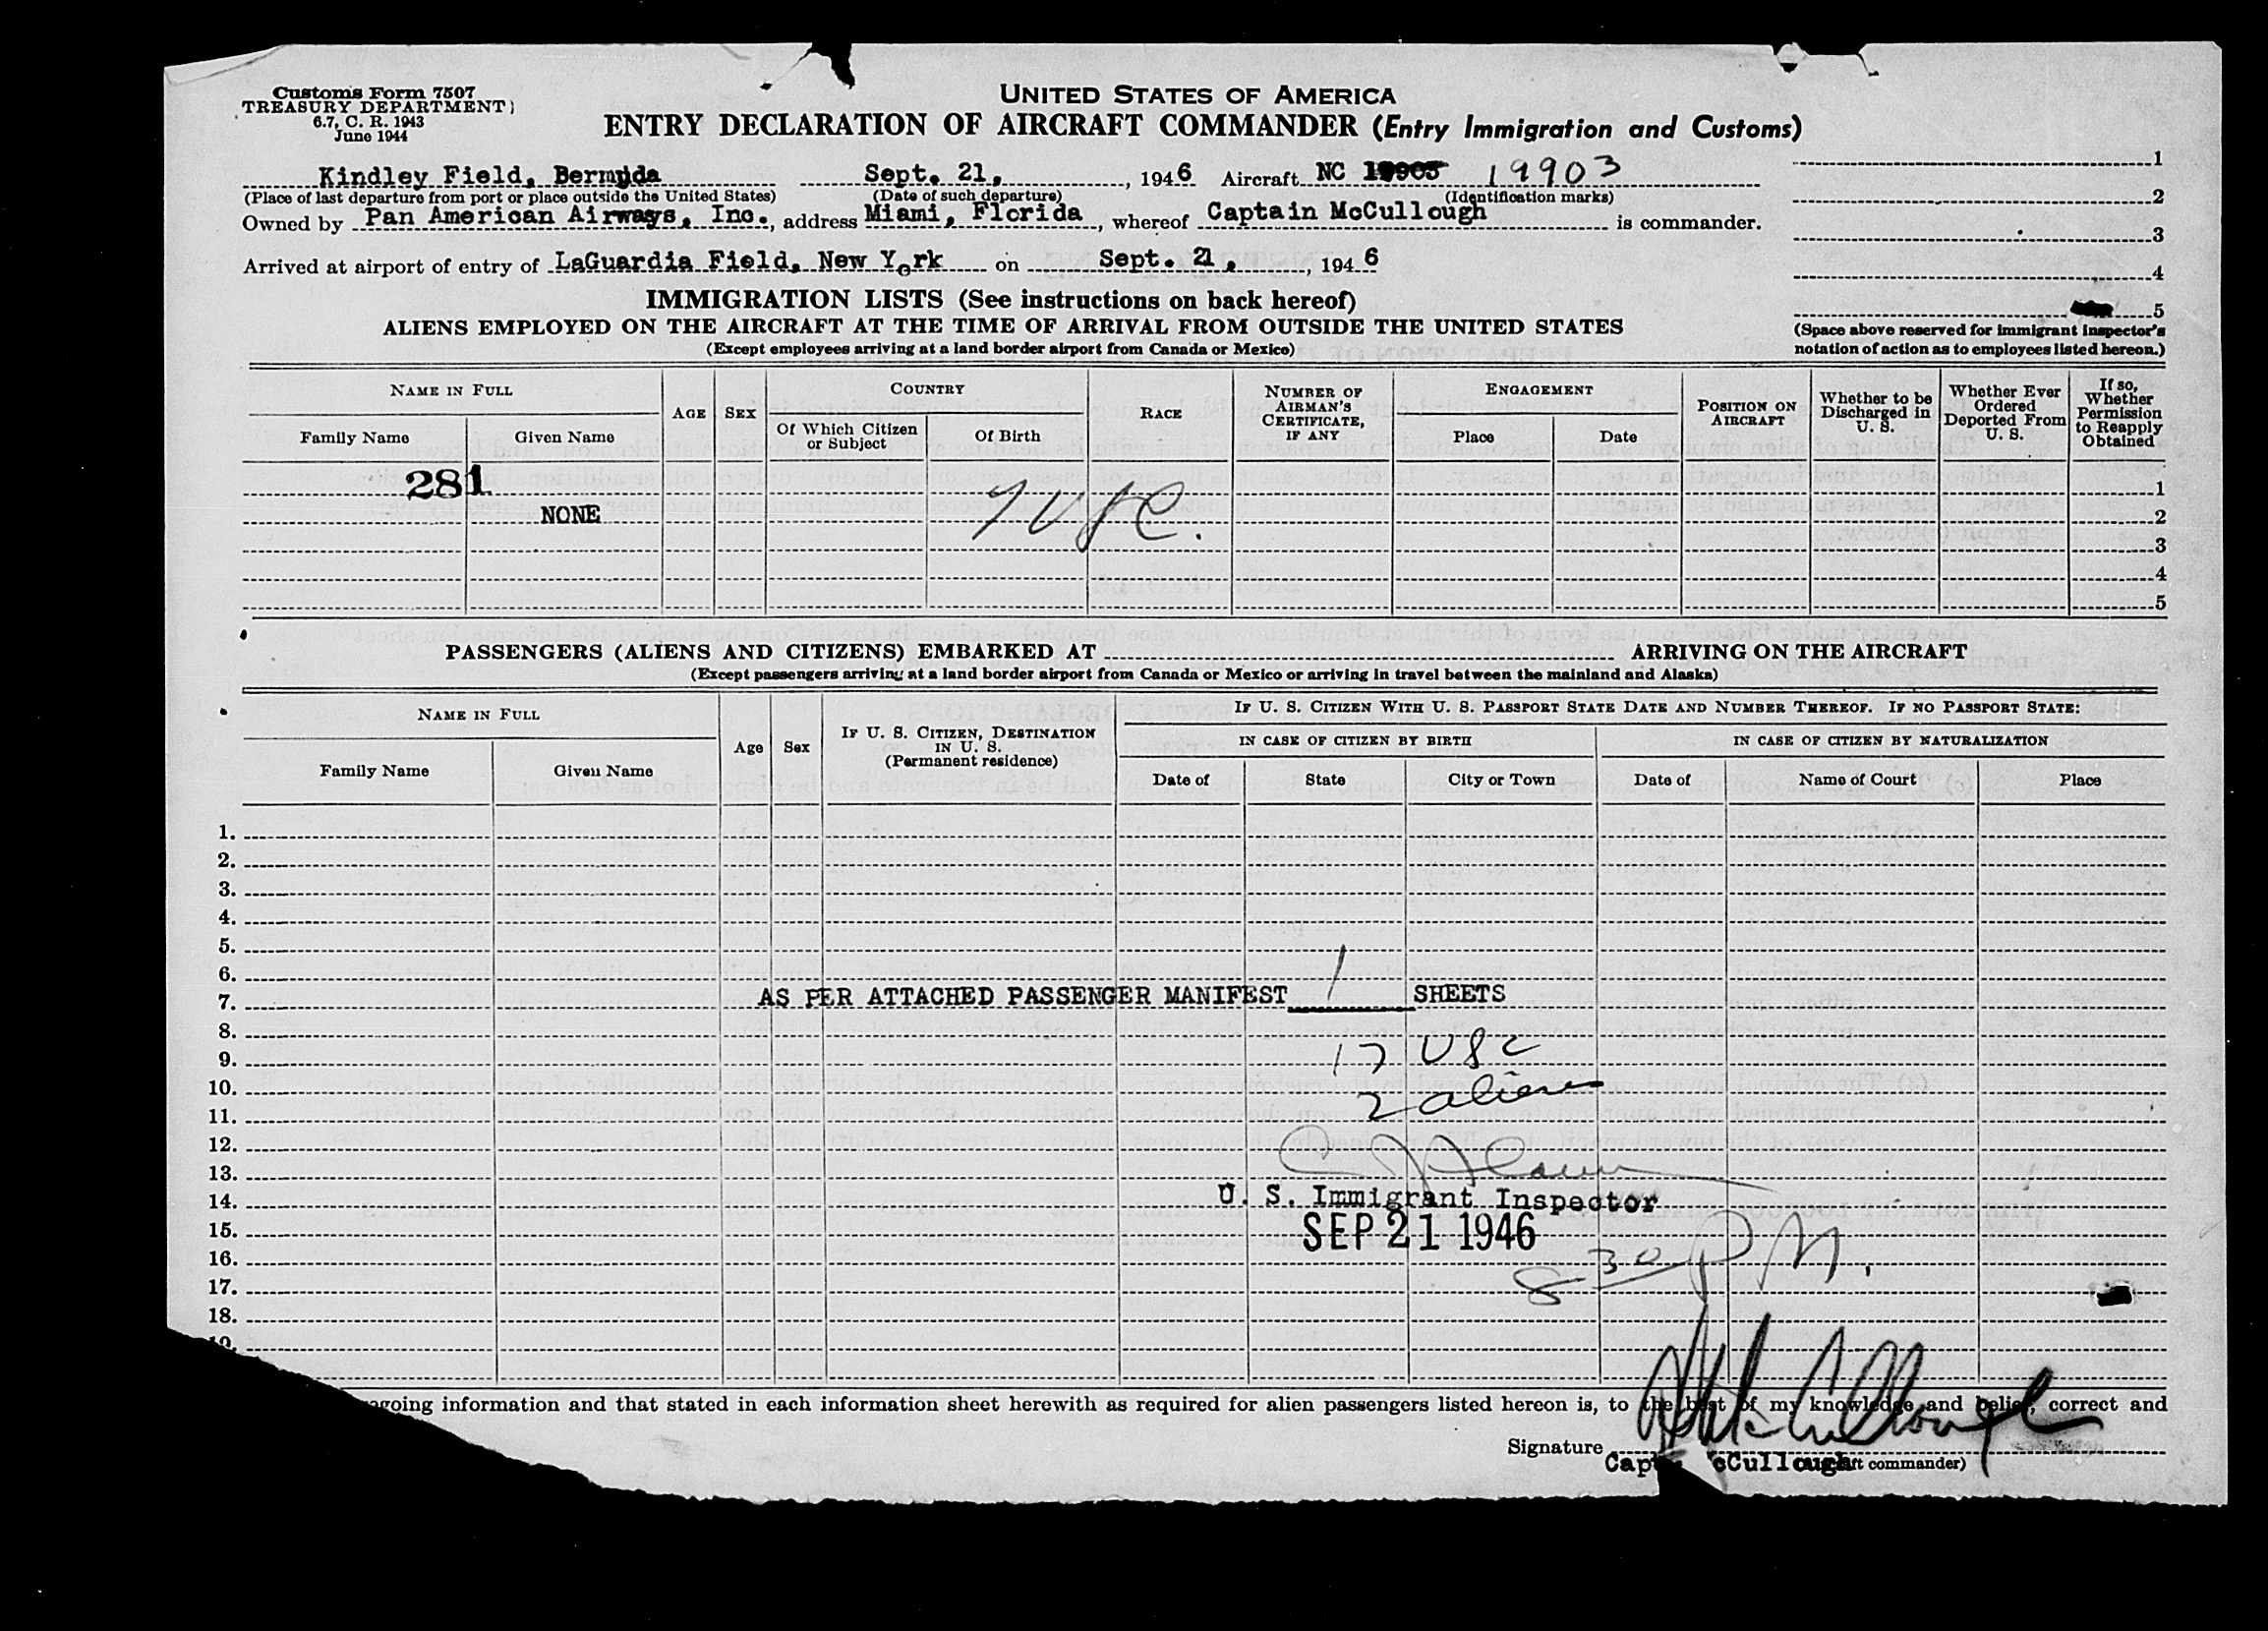 Customs Form 7507
TREASURY DEPARTMENT
6.7, C. R. 1943
June 1944
UNITED STATES OF AMERICA
ENTRY DECLARATION OF AIRCRAFT COMMANDER (Entry Immigration and Customs)
Kindley Field, Bermuda Sept. 21, , 1946 Aircraft NC 19903
(Place of last departure from port or place outside the United States) (Date of such departure) (Identification marks)
Owned by Pan American Airways, Inc., address Miami, Florida, whereof Captain McCullough is commander.
Arrived at airport of entry of LaGuardia Field, New York on Sept. 21, , 1946
1
2
3
4
5
(Space above reserved for immigrant inspector's
notation of action as to employees listed hereon.)
IMMIGRATION LISTS (See instructions on back hereof)
ALIENS EMPLOYED ON THE AIRCRAFT AT THE TIME OF ARRIVAL FROM OUTSIDE THE UNITED STATES
(Except employees arriving at a land border airport from Canada or Mexico)
NAME IN FULL
Family Name Given Name
AGE
SEX
COUNTRY
Of Which Citizen or Subject
Of Birth
RACE
NUMBER OF AIRMAN'S CERTIFICATE, IF ANY
ENGAGEMENT
Place Date
POSITION ON AIRCRAFT
Whether to be Discharged in U. S.
Whether Ever Ordered Deported From U. S.
If so, Whether Permission to Reapply Obtained
281 1
NONE 7 USC. 2
3
4
5
PASSENGERS (ALIENS AND CITIZENS) EMBARKED AT ARRIVING ON THE AIRCRAFT
(Except passengers arriving at a land border airport from Canada or Mexico or arriving in travel between the mainland and Alaska)
NAME IN FULL
Family Name Given Name
Age
Sex
IF U. S. CITIZEN, DESTINATION IN U. S. (Permanent residence)
IF U. S. CITIZEN WITH U. S. PASSPORT STATE DATE AND NUMBER THEREOF. IF NO PASSPORT STATE:
IN CASE OF CITIZEN BY BIRTH IN CASE OF CITIZEN BY NATURALIZATION
Date of State City or Town Date of Name of Court Place
1.
2.
3.
4.
5.
6.
7. AS PER ATTACHED PASSENGER MANIFEST 1 SHEETS
8.
9. 17 USC
10. 2 aliens
11.
12.
13.
14. U. S. Immigrant Inspector
15. SEP 21 1946
16. 8 30 PM.
17.
18.
19.
going information and that stated in each information sheet herewith as required for alien passengers listed hereon is, to the best of my knowledge and belief, correct and
Signature McCullough
Capt cCullough commander)